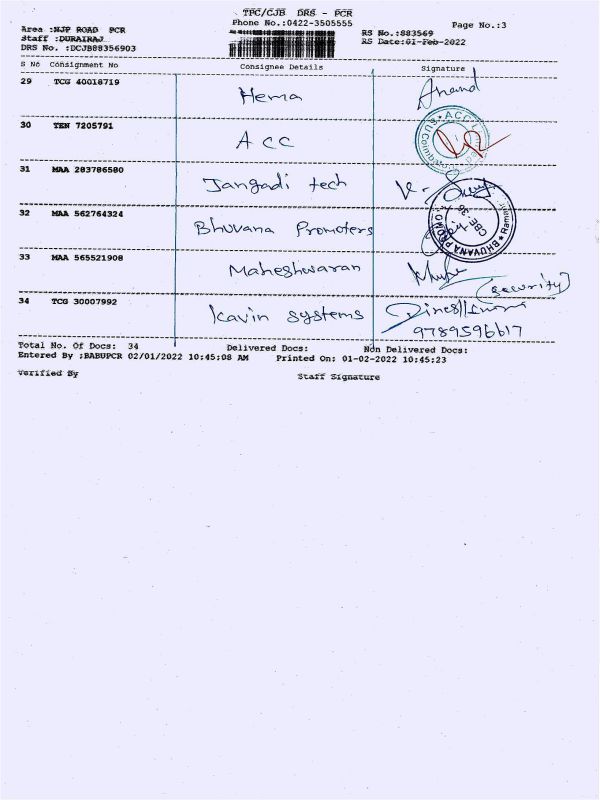 TPC/CJB DRS - PCR
Phone No.:0422-3505555
Page No.:3
Area :NJP ROAD PCR
RS No.:883569
Staff :DURAIRAJ
RS Date:01-Feb-2022
DRS No. :DCJB88356903
S No Consignment No Consignee Details Signature
29 TCG 40018719 Hema Anand
30 TEN 7205791 ACC
31 MAA 283786580 Jangadi tech
32 MAA 562764324 Bhuvana Promoters
BHUVANA PROMO
33 MAA 565521908 Maheshwaran
(security)
34 TCG 30007992 Kavin systems
9789596617
Total No. Of Docs: 34 Delivered Docs: Non Delivered Docs:
Entered By :BABUPCR 02/01/2022 10:45:08 AM Printed On: 01-02-2022 10:45:23
Verified By Staff Signature